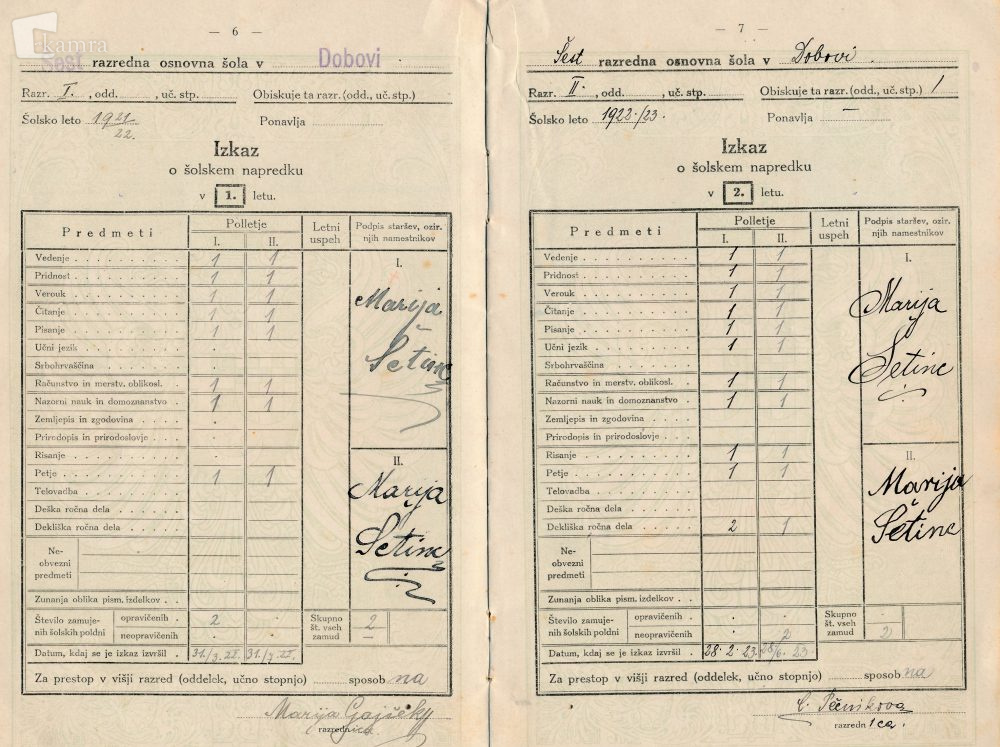 kamra
— 6 —
Šest razredna osnovna šola v Dobovi
Razr. I. , odd. , uč. stp. Obiskuje ta razr. (odd., uč. stp.)
Šolsko leto 1921/22. Ponavlja
Izkaz
o šolskem napredku
v 1. letu.
Predmeti Polletje Letni uspeh Podpis staršev, ozir. njih namestnikov
I. II.
Vedenje 1 1 I.
Pridnost 1 1
Verouk 1 1 Marija
Čitanje 1 1
Pisanje 1 1
Učni jezik . Šetinc
Srbohrvaščina .
Računstvo in merstv. oblikosl. 1 1
Nazorni nauk in domoznanstvo 1 1
Zemljepis in zgodovina .
Prirodopis in prirodoslovje .
Risanje . II.
Petje 1 1
Telovadba . Marija
Deška ročna dela
Dekliška ročna dela . Šetinc
Ne-
obvezni
predmeti
Zunanja oblika pism. izdelkov
Število zamuje- opravičenih 2 . Skupno 2
nih šolskih poldni neopravičenih . . št. vseh zamud —
Datum, kdaj se je izkaz izvršil 31./3. 22. 31./3. 22.
Za prestop v višji razred (oddelek, učno stopnjo) sposobna
Marija
razrednica.
— 7 —
Šest razredna osnovna šola v Dobovi.
Razr. II. , odd. , uč. stp. Obiskuje ta razr. (odd., uč. stp.) 1
Šolsko leto 1922./23. Ponavlja —
Izkaz
o šolskem napredku
v 2. letu.
Predmeti Polletje Letni uspeh Podpis staršev, ozir. njih namestnikov
I. II.
Vedenje 1 1 I.
Pridnost 1 1
Verouk 1 1
Čitanje 1 1 Marija
Pisanje 1 1
Učni jezik 1 1
Srbohrvaščina Šetinc
Računstvo in merstv. oblikosl. 1 1
Nazorni nauk in domoznanstvo 1 1
Zemljepis in zgodovina
Prirodopis in prirodoslovje
Risanje 1 1 II.
Petje 1 1 Marija
Telovadba
Deška ročna dela
Dekliška ročna dela 2 1 Šetinc
Ne-
obvezni
predmeti
Zunanja oblika pism. izdelkov
Število zamuje- opravičenih . . Skupno .
nih šolskih poldni neopravičenih . 2 št. vseh zamud 2
Datum, kdaj se je izkaz izvršil 28. 2. 23. 28/6. 23.
Za prestop v višji razred (oddelek, učno stopnjo) sposobna
Pečnikova
razrednica.